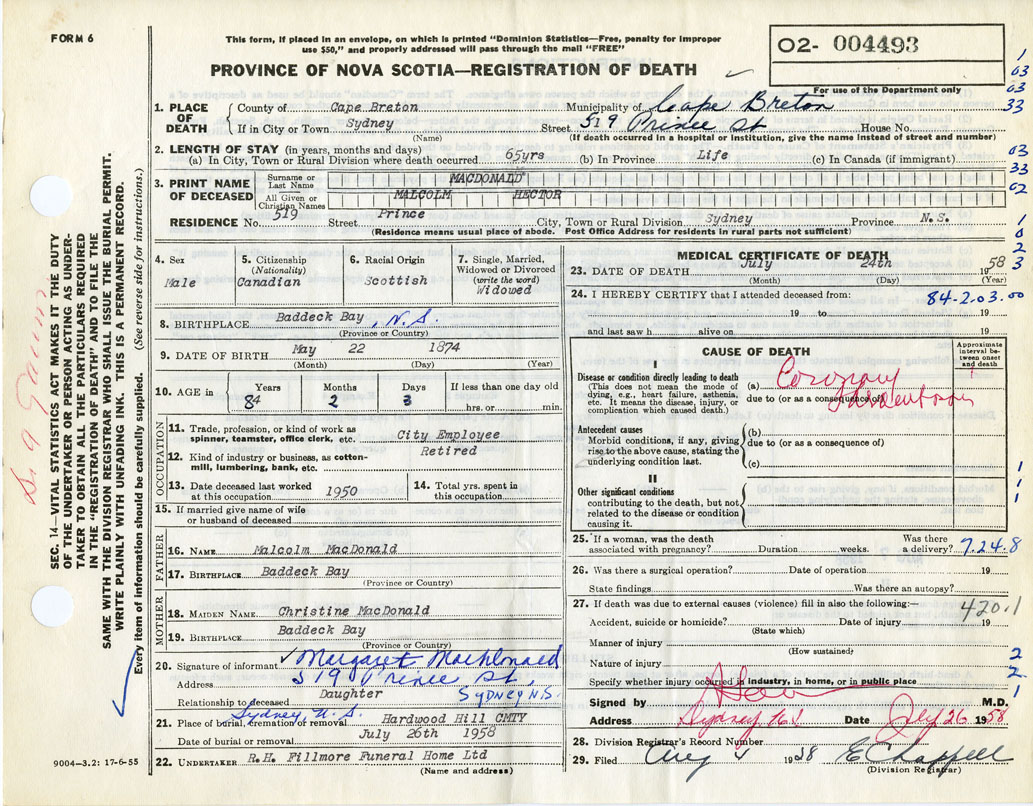 FORM 6
This form, if placed in an envelope, on which is printed "Dominion Statistics—Free, penalty for improper
use $50," and properly addressed will pass through the mail "FREE"
PROVINCE OF NOVA SCOTIA—REGISTRATION OF DEATH
02- 004493
For use of the Department only
1. PLACE OF DEATH
County of Cape Breton Municipality of Cape Breton
If in City or Town Sydney Street 519 Prince St House No.
(Name) (If death occurred in a hospital or institution, give the name instead of street and number)
2. LENGTH OF STAY (in years, months and days)
(a) In City, Town or Rural Division where death occurred 65yrs (b) In Province Life (c) In Canada (if immigrant)
3. PRINT NAME OF DECEASED
Surname or Last Name MACDONALD
All Given or Christian Names MALCOLM HECTOR
RESIDENCE No. 519 Street Prince City, Town or Rural Division Sydney Province N.S.
(Residence means usual place of abode. Post Office Address for residents in rural parts not sufficient)
4. Sex Male
5. Citizenship (Nationality) Canadian
6. Racial Origin Scottish
7. Single, Married, Widowed or Divorced (write the word) Widowed
8. BIRTHPLACE Baddeck Bay, N.S.
(Province or Country)
9. DATE OF BIRTH May 22 1874
(Month) (Day) (Year)
10. AGE in Years 84 Months 2 Days 3 If less than one day old hrs. or min.
OCCUPATION
11. Trade, profession, or kind of work as spinner, teamster, office clerk, etc. City Employee
12. Kind of industry or business, as cotton-mill, lumbering, bank, etc. Retired
13. Date deceased last worked at this occupation 1950 14. Total yrs. spent in this occupation
15. If married give name of wife or husband of deceased
FATHER
16. NAME Malcolm MacDonald
17. BIRTHPLACE Baddeck Bay
(Province or Country)
MOTHER
18. MAIDEN NAME Christine MacDonald
19. BIRTHPLACE Baddeck Bay
(Province or Country)
20. Signature of informant Margaret MacDonald
Address 519 Prince St,
Relationship to deceased Daughter SYDNEY N.S.
21. Place of burial, cremation or removal Sydney, N.S. Hardwood Hill CMTY
Date of burial or removal July 26th 1958
22. UNDERTAKER R.H. Fillmore Funeral Home Ltd
(Name and address)
MEDICAL CERTIFICATE OF DEATH
23. DATE OF DEATH July 24th 1958
(Month) (Day) (Year)
24. I HEREBY CERTIFY that I attended deceased from: 84-2.03.00
19 to 19
and last saw h alive on 19
CAUSE OF DEATH
Approximate interval between onset and death
I
Disease or condition directly leading to death
(This does not mean the mode of dying, e.g., heart failure, asthenia, etc. It means the disease, injury, or complication which caused death.)
(a) Coronary Thrombosis
due to (or as a consequence of)
Antecedent causes
Morbid conditions, if any, giving rise to the above cause, stating the underlying condition last.
(b)
due to (or as a consequence of)
(c)
II
Other significant conditions
contributing to the death, but not related to the disease or condition causing it.
25. If a woman, was the death associated with pregnancy? Duration weeks. Was there a delivery? 7.24.8
26. Was there a surgical operation? Date of operation 19
State findings Was there an autopsy?
27. If death was due to external causes (violence) fill in also the following:— 420.1
Accident, suicide or homicide? Date of injury 19
(State which)
Manner of injury
(How sustained)
Nature of injury
Specify whether injury occurred in industry, in home, or in public place
Signed by M.D.
Address Sydney N.S Date July 26 1958
28. Division Registrar's Record Number
29. Filed Aug 1958 E Chappell
(Division Registrar)
SEC. 14—VITAL STATISTICS ACT MAKES IT THE DUTY
OF THE UNDERTAKER OR PERSON ACTING AS UNDER-
TAKER TO OBTAIN ALL THE PARTICULARS REQUIRED
IN THE "REGISTRATION OF DEATH" AND TO FILE THE
SAME WITH THE DIVISION REGISTRAR WHO SHALL ISSUE THE BURIAL PERMIT.
WRITE PLAINLY WITH UNFADING INK. THIS IS A PERMANENT RECORD.
Every item of information should be carefully supplied. (See reverse side for instructions.)
9004—3.2: 17-6-55
1
03
03
33
03
33
02
1
0
2
3
1
1
1
2
2
1